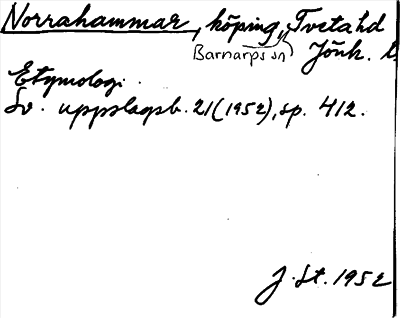 Norrahammar, köping, Tveta hd
Barnarps sn Jönk. l.
Etymologi.
Sv. uppslagsb. 21(1952), sp. 412.
J. St. 1952